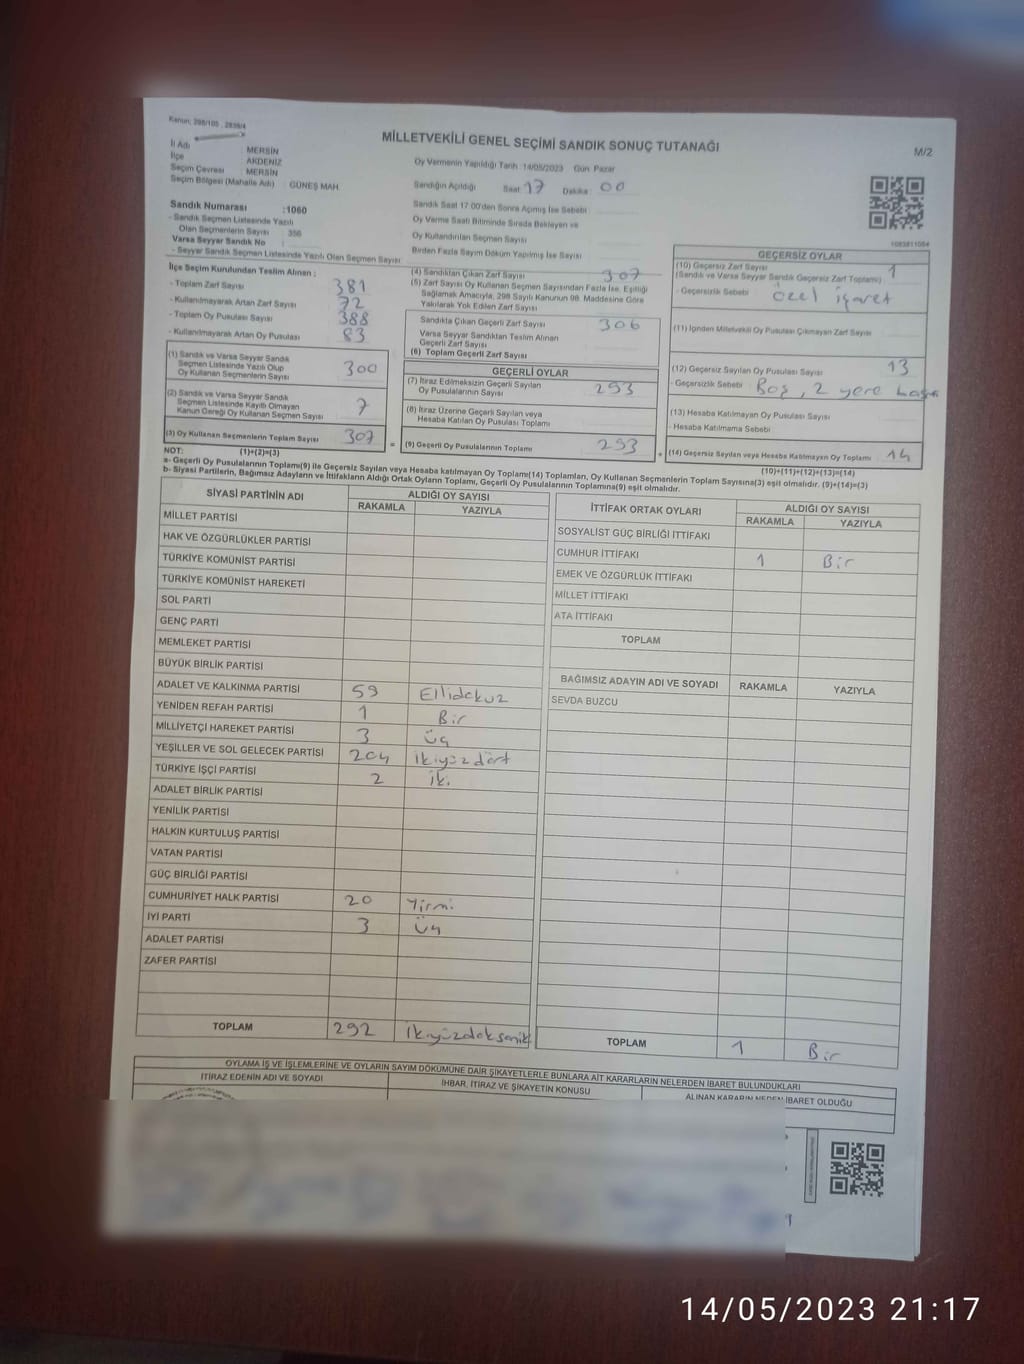 Kanun: 298/105 , 2839/4
MİLLETVEKİLİ GENEL SEÇİMİ SANDIK SONUÇ TUTANAĞI
M/2
İl Adı MERSİN
İlçe AKDENİZ
Seçim Çevresi MERSİN
Seçim Bölgesi (Mahalle Adı) : GÜNEŞ MAH.
Oy Vermenin Yapıldığı Tarih :14/05/2023 Gün Pazar
Sandığın Açıldığı Saat 17 Dakika 00
Sandık Saat 17:00'den Sonra Açımış İse Sebebi
Oy Verme Saati Bitiminde Sırada Bekleyen ve
Oy Kullandırılan Seçmen Sayısı
Birden Fazla Sayım Döküm Yapılmış İse Sayısı
Sandık Numarası :1060
- Sandık Seçmen Listesinde Yazılı
Olan Seçmenlerin Sayısı : 356
Varsa Seyyar Sandık No :
- Seyyar Sandık Seçmen Listesinde Yazılı Olan Seçmen Sayısı
İlçe Seçim Kurulundan Teslim Alınan ;
- Toplam Zarf Sayısı 381
- Kullanılmayarak Artan Zarf Sayısı 72
- Toplam Oy Pusulası Sayısı 388
- Kullanılmayarak Artan Oy Pusulası 83
(1) Sandık ve Varsa Seyyar Sandık
Seçmen Listesinde Yazılı Olup
Oy Kullanan Seçmenlerin Sayısı 300
(2) Sandık ve Varsa Seyyar Sandık
Seçmen Listesinde Kayıtlı Olmayan
Kanun Gereği Oy Kullanan Seçmen Sayısı 7
(3) Oy Kullanan Seçmenlerin Toplam Sayısı 307
(4) Sandıktan Çıkan Zarf Sayısı 307
(5) Zarf Sayısı Oy Kullanan Seçmen Sayısından Fazla İse, Eşitliği
Sağlamak Amacıyla, 298 Sayılı Kanunun 98. Maddesine Göre
Yakılarak Yok Edilen Zarf Sayısı
Sandıkta Çıkan Geçerli Zarf Sayısı 306
Varsa Seyyar Sandıktan Teslim Alınan
Geçerli Zarf Sayısı
(6) Toplam Geçerli Zarf Sayısı
GEÇERLİ OYLAR
(7) İtiraz Edilmeksizin Geçerli Sayılan
Oy Pusulalarının Sayısı 293
(8) İtiraz Üzerine Geçerli Sayılan veya
Hesaba Katılan Oy Pusulası Toplamı
= (9) Geçerli Oy Pusulalarının Toplamı 293
GEÇERSİZ OYLAR
(10) Geçersiz Zarf Sayısı 1
(Sandık ve Varsa Seyyar Sandık Geçersiz Zarf Toplamı)
- Geçersizlik Sebebi : özel işaret
(11) İçinden Milletvekili Oy Pusulası Çıkmayan Zarf Sayısı
(12) Geçersiz Sayılan Oy Pusulası Sayısı 13
- Geçersizlik Sebebi : Boş, 2 yere
(13) Hesaba Katılmayan Oy Pusulası Sayısı
- Hesaba Katılmama Sebebi
+ (14) Geçersiz Sayılan veya Hesaba Katılmayan Oy Toplamı 14
NOT: (1)+(2)=(3) (10)+(11)+(12)+(13)=(14)
a- Geçerli Oy Pusulalarının Toplamı(9) ile Geçersiz Sayılan veya Hesaba katılmayan Oy Toplamı(14) Toplamları, Oy Kullanan Seçmenlerin Toplam Sayısına(3) eşit olmalıdır. (9)+(14)=(3)
b- Siyasi Partilerin, Bağımsız Adayların ve İttifakların Aldığı Ortak Oyların Toplamı, Geçerli Oy Pusulalarının Toplamına(9) eşit olmalıdır.
SİYASİ PARTİNİN ADI ALDIĞI OY SAYISI
RAKAMLA YAZIYLA
MİLLET PARTİSİ
HAK VE ÖZGÜRLÜKLER PARTİSİ
TÜRKİYE KOMÜNİST PARTİSİ
TÜRKİYE KOMÜNİST HAREKETİ
SOL PARTİ
GENÇ PARTİ
MEMLEKET PARTİSİ
BÜYÜK BİRLİK PARTİSİ
ADALET VE KALKINMA PARTİSİ 59 Ellidokuz
YENİDEN REFAH PARTİSİ 1 Bir
MİLLİYETÇİ HAREKET PARTİSİ 3 üç
YEŞİLLER VE SOL GELECEK PARTİSİ 204 ikiyüzdört
TÜRKİYE İŞÇİ PARTİSİ 2 iki
ADALET BİRLİK PARTİSİ
YENİLİK PARTİSİ
HALKIN KURTULUŞ PARTİSİ
VATAN PARTİSİ
GÜÇ BİRLİĞİ PARTİSİ
CUMHURİYET HALK PARTİSİ 20 Yirmi
İYİ PARTİ 3 Üç
ADALET PARTİSİ
ZAFER PARTİSİ
TOPLAM 292 ikiyüzdoksanik
İTTİFAK ORTAK OYLARI ALDIĞI OY SAYISI
RAKAMLA YAZIYLA
SOSYALİST GÜÇ BİRLİĞİ İTTİFAKI
CUMHUR İTTİFAKI 1 Bir
EMEK VE ÖZGÜRLÜK İTTİFAKI
MİLLET İTTİFAKI
ATA İTTİFAKI
TOPLAM
BAĞIMSIZ ADAYIN ADI VE SOYADI RAKAMLA YAZIYLA
SEVDA BUZCU
TOPLAM 1 Bir
OYLAMA İŞ VE İŞLEMLERİNE VE OYLARIN SAYIM DÖKÜMÜNE DAİR ŞİKAYETLERLE BUNLARA AİT KARARLARIN NELERDEN İBARET BULUNDUKLARI
İTİRAZ EDENİN ADI VE SOYADI İHBAR, İTİRAZ VE ŞİKAYETİN KONUSU ALINAN KARARIN NEDEN İBARET OLDUĞU
14/05/2023 21:17